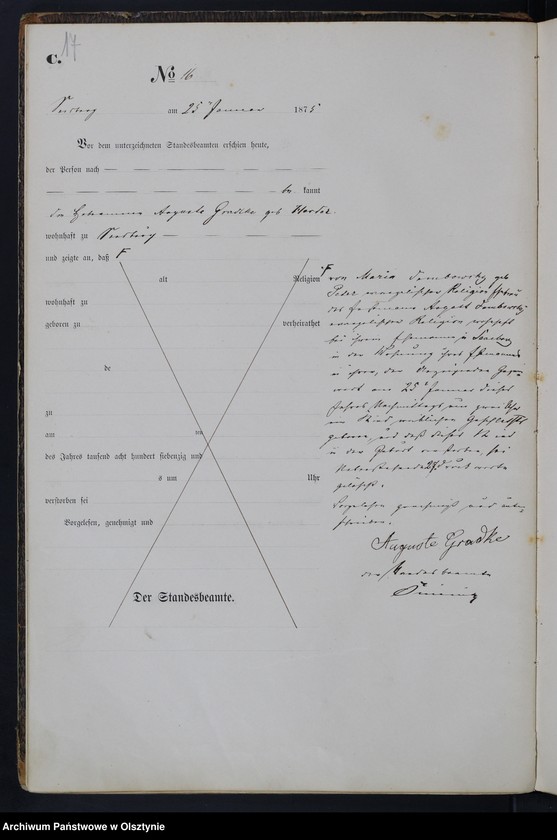 C. 17
No 16
am 25 Januar 1875
Vor dem unterzeichneten Standesbeamten erschien heute,
der Person nach
be kannt
die Hebamme Auguste Gradtke geb
wohnhaft zu
und zeigte an, daß F
alt Religion
wohnhaft zu
geboren zu verheirathet
de
zu
am im
des Jahres tausend acht hundert siebenzig und
s um Uhr
verstorben sei
Vorgelesen, genehmigt und
Der Standesbeamte.
F von Maria Dembowsky geb
evangelischer Religion Ehefrau
des August Dembowsky
evangelischer Religion wohnhaft
bei ihrem Ehemanne
in der Wohnung ihres Ehemannes
in ihrer, der Anzeigenden Gegen
wart am 25 Januar dieses
Jahres Nachmittags um zwei Uhr
ein Kind weiblichen Geschlechts
geboren, und daß dieses
in der Geburt verstorben sei
Vorstehende 27 Druckworte
gelöscht.
Vorgelesen genehmigt und unter
schrieben.
Auguste Gradke
der Standesbeamte
Archiwum Państwowe w Olsztynie